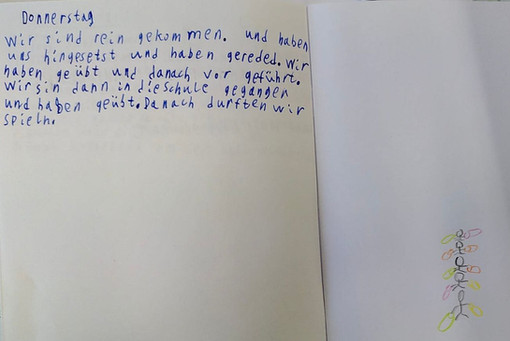 Donnerstag
Wir sind rein gekommen. und haben
uns hingesetst und haben gereded. Wir
haben geübt und danach vor geführt.
Wir sin dann in die schule gegangen
und haben geübt. Danach durften wir
spieln.